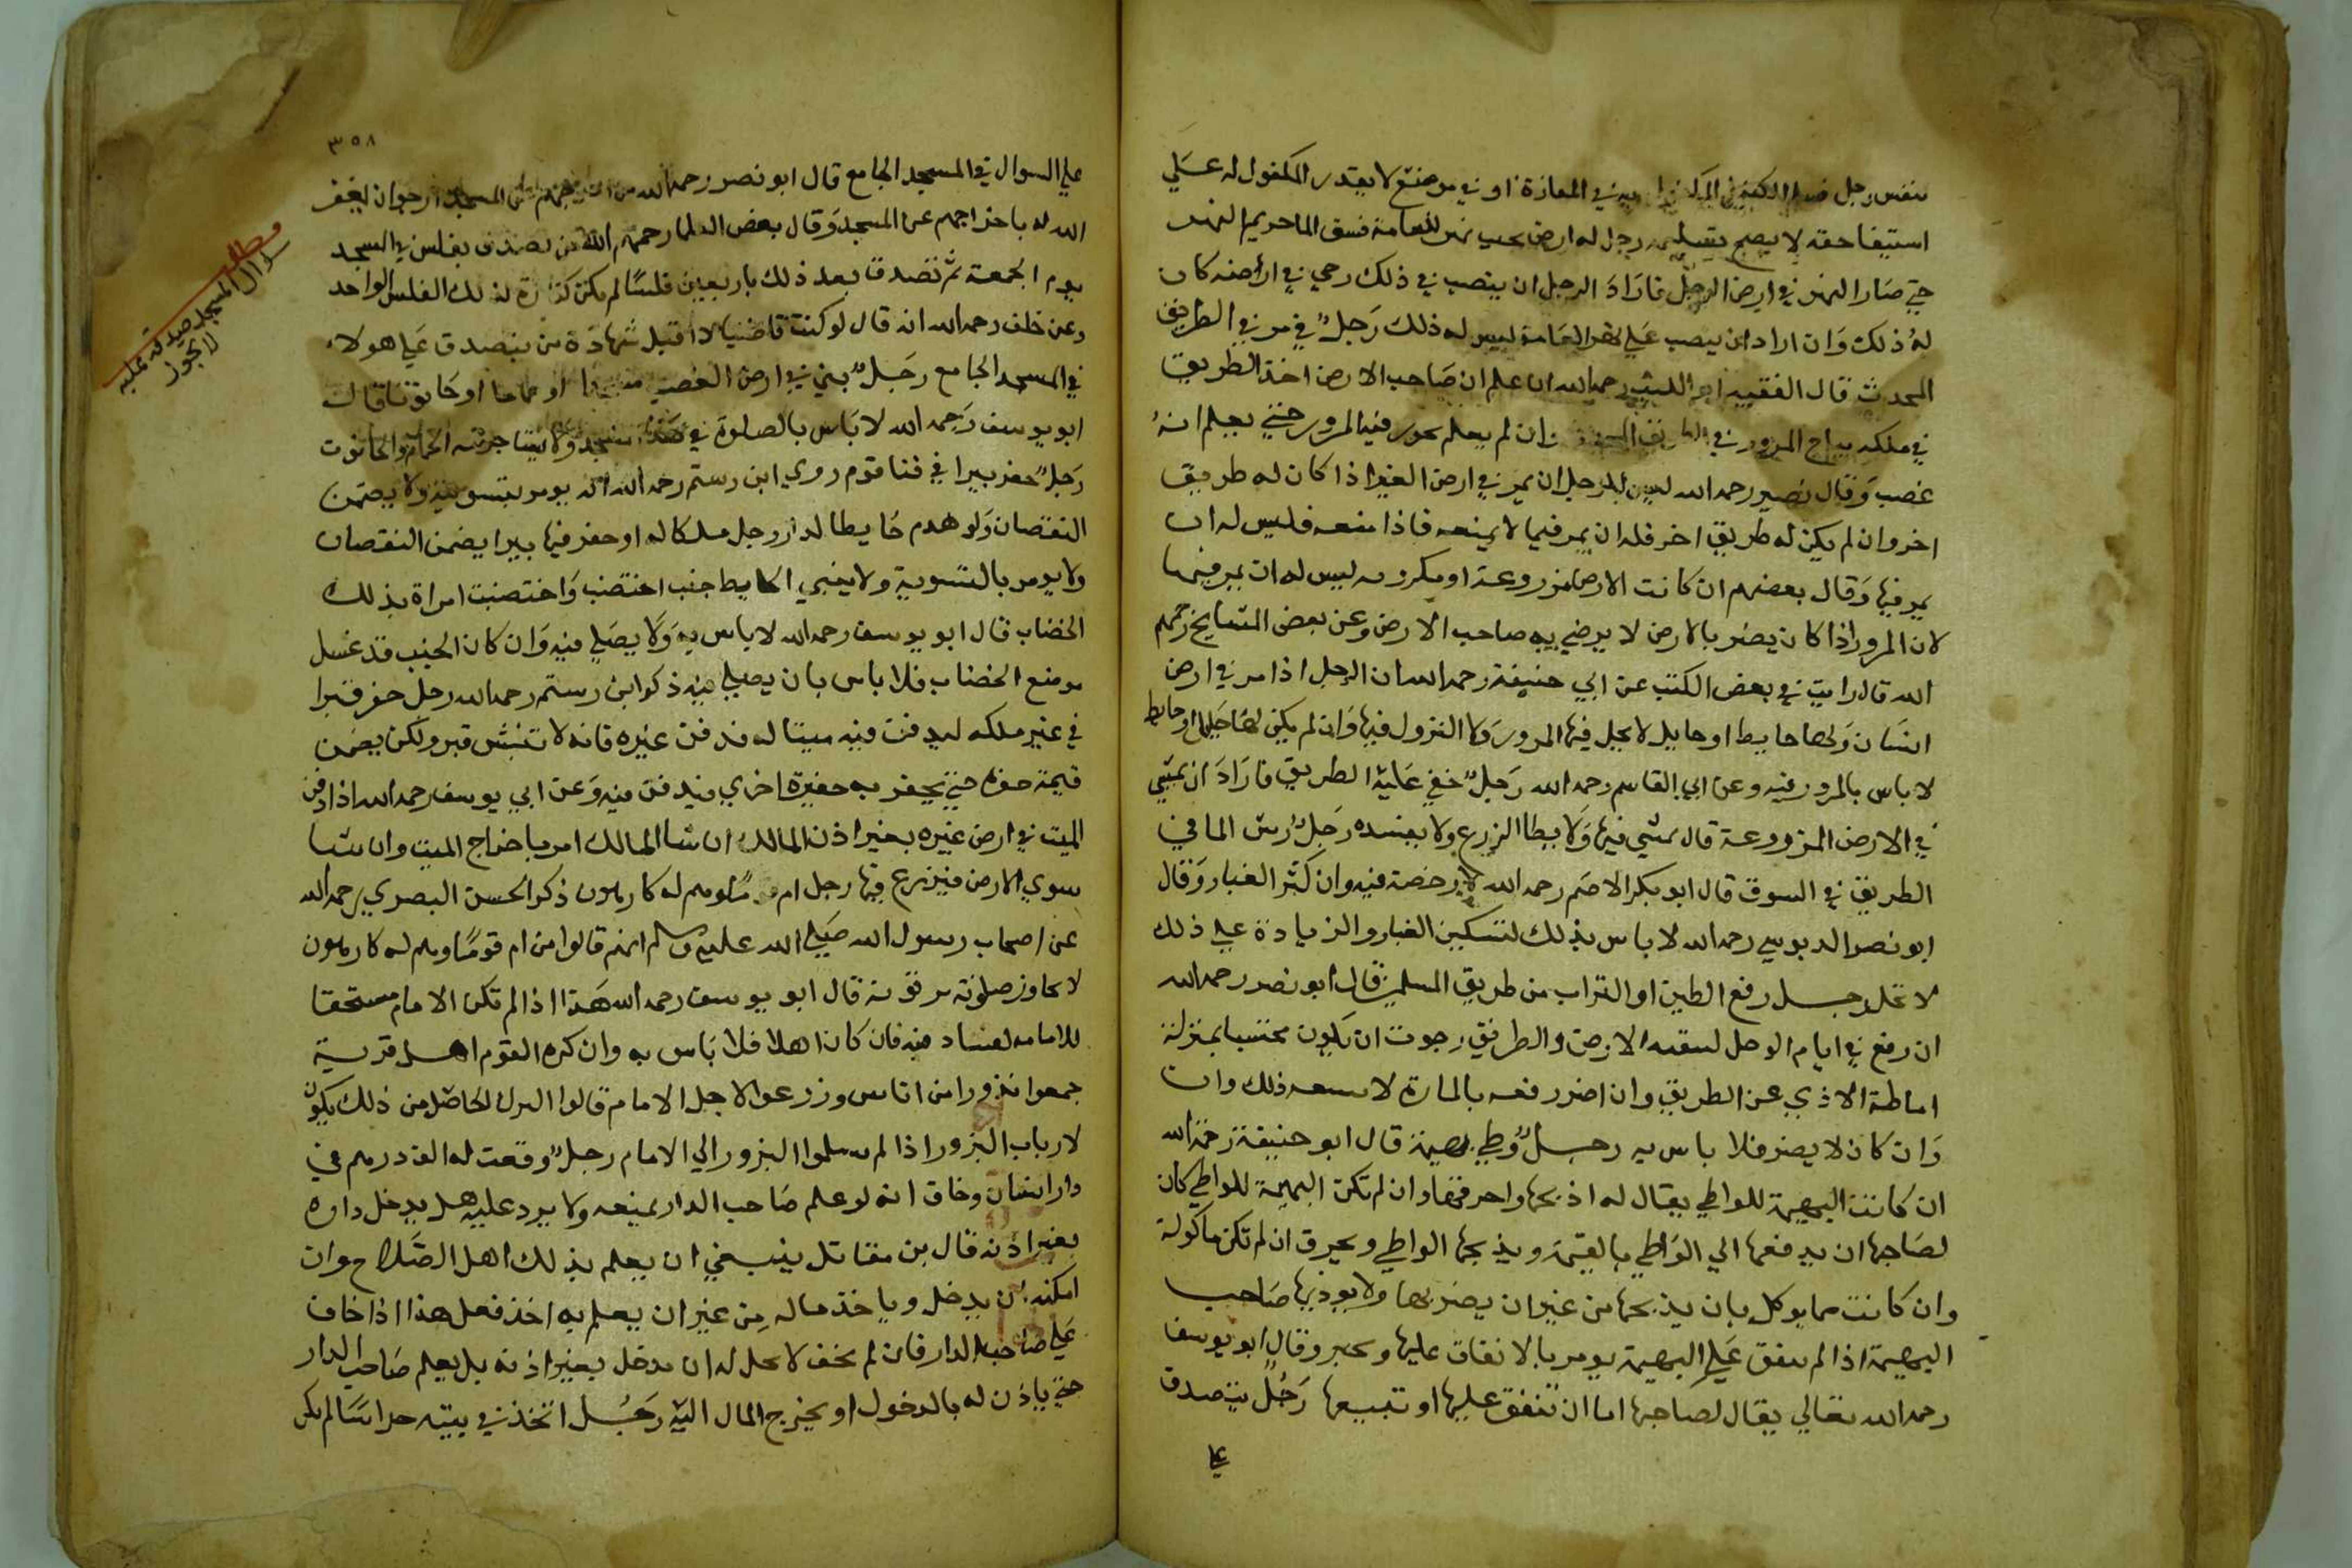 بنفس رجل في المفازة او في موضع لا يقدر المكفول له علي
استيفا حقه لا يصح رجل له ارض بجنب نهر للعامة فشق الما حريم النهر
حتي صار النهر في ارض الرجل فاراد الرجل ان ينصب في ذلك رحي في ارضه كان
له ذلك وان اراد ان ينصب علي نهر العامة ليس له ذلك رجل في مر في الطريق
المحدث قال الفقيه ابو الليث رحمه الله ان علم ان صاحب الارض اخذ الطريق
في ملكه يباح المرور في وان لم يعلم يجوز فيه المرور حتي يعلم انه
غصب وقال نصير رحمه الله ليس للرجل ان يمر في ارض الغير اذا كان له طريق
اخر وان لم يكن له طريق اخر فله ان يمر فيها لا يمنعه فاذا منعه فليس له ان
يمر فيها وقال بعضهم ان كانت الارض مزروعة او مكروبه ليس له ان يمر فيها
لان المرور اذا كان يضر بالارض لا يرضي به صاحب الارض وعن بعض المشايخ رحمهم
الله قال رايت في بعض الكتب عن ابي حنيفة رحمه الله ان الرجل اذا مر في ارض
انسان ولها حايط او حايل لا يحل فيها المرور ولا النزول فيها وان لم يكن لها حايل او حايط
لا باس بالمرور فيه وعن ابي القاسم رحمه الله رجل خفي عليه الطريق فاراد ان يمشي
في الارض المزروعة قال يمشي فيها ولا يطا الزرع ولا يفسده رجل رش الما في
الطريق في السوق قال ابو بكر الاصم رحمه الله لا رخصة فيه وان كثر الغبار وقال
ابو نصر الدبوسي رحمه الله لا باس بذلك لتسكين الغبار والزيادة علي ذلك
لا تحل رجل رفع الطين او التراب من طريق المسلمين قال ابو نصر رحمه الله
ان رفع في ايام الوحل الارض والطريق رجوت ان يكون محتسبا بمنزلة
اماطة الاذي عن الطريق وان اضر رفعه بالمارة لا يسعه ذلك وان
وان كان لا يضر فلا باس به رجل وطي بهيمة قال ابو حنيفة رحمه الله
ان كانت البهيمة للواطي يقال له اذبحها واحرقها وان لم تكن البهيمة للواطي كان
لصاحبها ان يدفعها الي الواطي بالقيمة ويذبحها الواطي ويحرق ان لم تكن ماكولة
وان كانت مما يوكل بان يذبحها من غير ان يضربها ولا يوذيها صاحب
البهيمة اذا لم ينفق علي البهيمة يومر بالانفاق عليها ويجبر وقال ابو يوسف
رحمه الله تعالي يقال لصاحبها اما ان تنفق عليها او تبيعها رجل يتصدق
علي
٣٥٨
علي السوال في المسجد الجامع قال ابو نصر رحمه الله من اخرجهم من المسجد ارجو ان يغفر
الله له باخراجهم عن المسجد وقال بعض العلما رحمهم الله من تصدق بفلس في المسجد
يوم الجمعة ثم تصدق بعد ذلك باربعين فلسا لم يكن كفارة لذلك الفلس الواحد
وعن خلف رحمه الله انه قال لو كنت قاضيا لا اقبل شهادة من يتصدق علي هولاء
في المسجد الجامع رجل بني في ارض الغصب مسجدا او حماما او حانوتا قال
ابو يوسف رحمه الله لا باس بالصلوة في هذا المسجد ولا يستاجر منه الحمام والحانوت
رجل حفر بيرا في فنا قوم روي ابن رستم رحمه الله انه يومر بتسويته ولا يضمن
النقصان ولو هدم حايطا لدار رجل ملكا له او حفر فيها بيرا يضمن النقصان
ولا يومر بالتسوية ولا يبني الحايط جنب اختضب واختضبت امراة بذلك
الخضاب قال ابو يوسف رحمه الله لا باس به ولا يصلي فيه وان كان الجنب قد غسل
موضع الخضاب فلا باس بان يصلي فيه ذكر ابن رستم رحمه الله رجل حفر قبرا
في غير ملكه ليدفن فيه ميتا له فدفن غيره فانه لا تنبش قبر ولكن يضمن
قيمة حفره حتي يحفر به حفيرة اخري فيدفن فيه وعن ابي يوسف رحمه الله اذا دفن
الميت في ارض غيره بغير اذن المالك ان شا المالك امر باخراج الميت وان شا
سوي الارض فيزرع فيها رجل ام قوما وهم له كارهون ذكر الحسن البصري رحمه الله
عن اصحاب رسول الله صلي الله عليه وسلم انهم قالوا من ام قوما وهم له كارهون
لا تجاوز صلوته ترقوته قال ابو يوسف رحمه الله هذا اذا لم تكن الامام مستحقا
للامامه لفساد فيه فان كان اهلا فلا باس به وان كره القوم اهل قرية
جمعوا بذورا من اناس وزرعوا لاجل الامام قالوا النزل الحاصل من ذلك يكون
لارباب البزور اذا لم يسلموا البزور الي الامام رجل وقعت له الف درهم في
دار انسان وخاف انه لو علم صاحب الدار يمنعه ولا يرد عليه هل يدخل داره
بغير اذنه قال بن مقاتل ينبغي ان يعلم بذلك اهل الصلاح وان
امكنه ان يدخل وياخذ ماله من غير ان يعلم به اخذ فعل هذا اذا خاف
علي صاحب الدار فان لم يخف لا يحل له ان يدخل بغير اذنه بل يعلم صاحب الدار
حتي ياذن له بالدخول او يخرج المال اليه رجل اتخذ في بيته لم يكن
مطلب
سوال المسجد صدقة عليه
لا يجوز